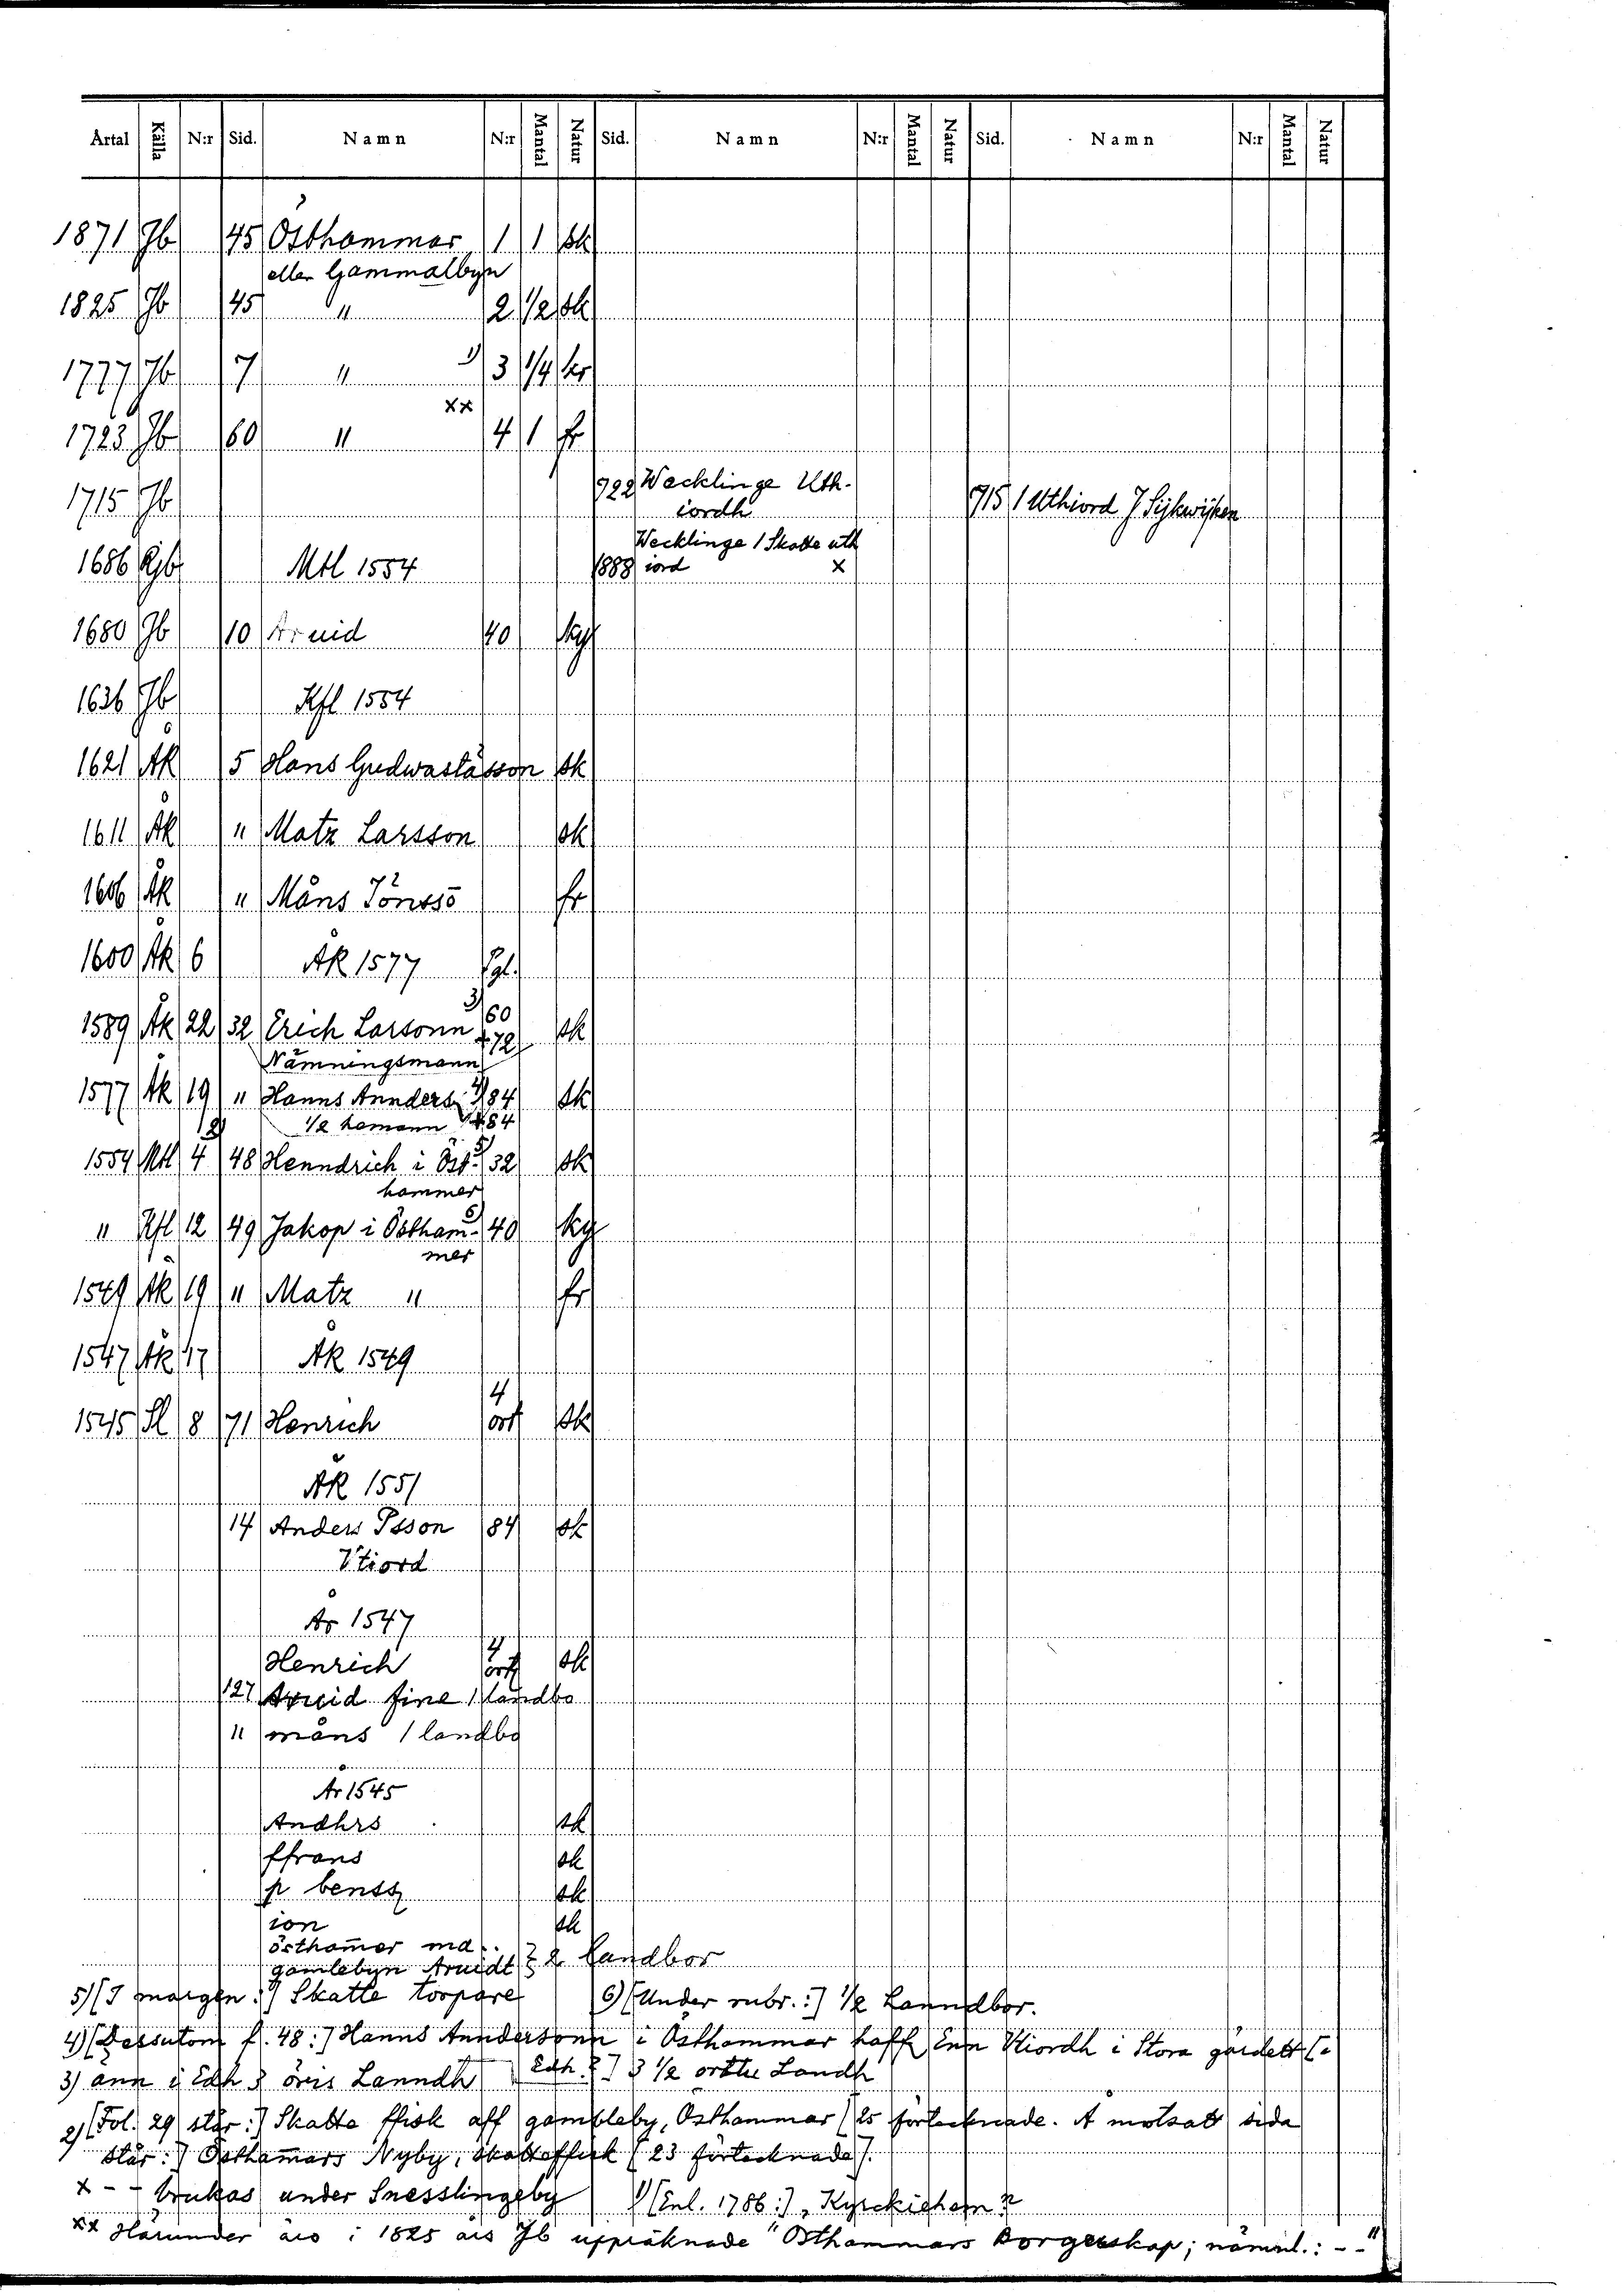 Årtal Källa N:r Sid. Namn N:r Mantal Natur Sid. Namn N:r Mantal Natur Sid. Namn N:r Mantal Natur
1871 Jb 45 Östhammar 1 1 sk
eller Gammalbyn
1825 Jb 45 " 2 1/2 sk
1777 Jb 7 " 1) 3 1/4 kr
xx
1723 Jb 60 " 4 1 fr
1715 Jb 722 Wecklinge Uth- 715 1 Uthiord J Sijkwijken
iordh
Wecklinge 1 Skatte uth
1686 Rjb Mtl 1554 1888 iord x
1680 Jb 10 Aruid 40 ky
1636 Jb Kfl 1554
1621 Åk 5 Hans Gudwastässon sk
1611 Åk " Matz Larsson sk
1606 Åk " Måns Jönssō fr
1600 Åk 6 ÅK 1577 Pgl.
3) 60
1589 Åk 22 32 Erich Larsonn +72 sk
Nämningsmann
1577 Åk 19 " Hanns Annders 4) 84 sk
1/2 hemann +84
1554 Mtl 2) 4 48 Henndrich i Öst- 5) 32 sk
hammer
" Kfl 12 49 Jakop i Östham- 6) 40 ky
mer
1549 Åk 19 " Matz " fr
1547 Åk 17 ÅK 1549
4
1545 Sl 8 71 Henrich ort sk
ÅK 1551
14 Anders Psson 84 sk
Vtiord
År 1547
4
Henrich ort sk
127 Aruid fine 1 landbo
" måns 1 landbo
År 1545
Andhrs sk
ffrans sk
p benss sk
ion sk
östham̄er ma..
gamlebyn Aruidt } 2 Landbor
5) [I margen:] Skatte torpare 6) [Under rubr.:] 1/2 Lanndbor.
4) [Dessutom f. 48:] Hanns Anndersonn i Östhammar haff Enn Vtiordh i Stora gärdett [=
3) änn i Edh 3 öris Lanndh Edh?] 3 1/2 orttu Landh
2) [Fol. 29 står:] Skatte ffisk aff gambleby, Östhammar [25 förtecknade. Å motsatt sida
står:] Östham̄ars Nyby, skatteffisk [23 förtecknade].
x - - brukas under Snesslingeby 1) [Enl. 1786:] "Kyrckiehem"
xx Härunder äro i 1825 års Jb uppräknade "Östhammars Borgerskap; nämnl.: - - "